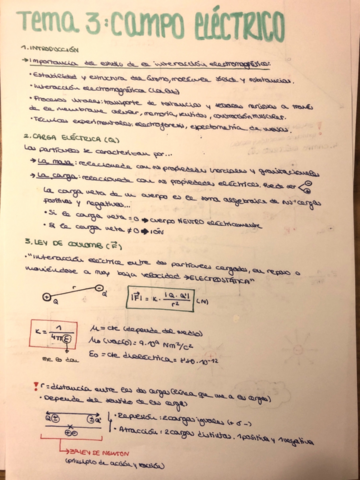 TEMA 3: CAMPO ELÉCTRICO
1. INTRODUCCIÓN
→ Importancia del estudio de la interacción electromagnética:
• Estabilidad y estructura del átomo, moléculas y sustancias.
• Interacción electromagnética
• Procesos vitales: transporte de nutrientes y a través
de la membrana celular, memoria, musculares.
• Técnicas experimentales: electroforesis, espectrometría de masas.
2. CARGA ELÉCTRICA (Q)
Las partículas se caracterizan por...
→ La masa: relacionada con las propiedades inerciales y gravitacionales
→ La carga: relacionada con las propiedades eléctricas
La carga neta de un cuerpo es la suma algebraica de sus cargas
positivas y negativas...
• Si la carga neta = 0 → cuerpo NEUTRO eléctricamente
• Si la carga neta ≠ 0 → IÓN
3. LEY DE COULOMB (F)
"interacción eléctrica entre dos partículas cargadas, en reposo o
moviéndose a muy baja velocidad → ELECTROSTÁTICA"
Q r Q
|F| = K · |Q · Q| / r² (N)
K = 1 / 4πε
K = cte (depende del medio)
K (vacío) = 9·10⁹ Nm²/C²
! r = distancia entre las dos cargas (línea que une a las cargas)
• Depende del de las cargas
• Repulsión: 2 cargas iguales (+ ó -)
• Atracción: 2 cargas distintas. 1 positiva y 1 negativa
→ 3ª LEY DE NEWTON
(principio de acción y reacción)